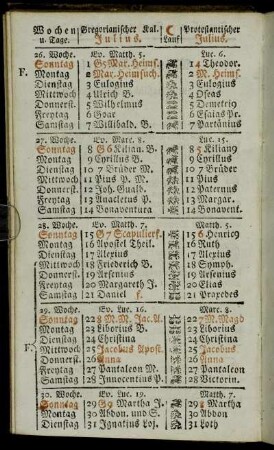 Wochen Gregorianischer Kal. C Protestantischer
u. Tage. Julius. Lauf Julius.
26. Woche. Ev. Matth. 5. Luc. 6.
Sonntag 1 G5 Mar. Heims. 14 Theodor.
F. Montag 2 Mar. Heimsuch. 2 M. Heims.
Dienstag 3 Eulogius 3 Eulogius
Mittwoch 4 Ulrich B. 4 Oseas
Donnerst. 5 Wilhelmus 5 Demetrig
Freytag 6 Goar 6 Esaias Pr.
Samstag 7 Willibald. B. 7
27. Woche. Ev. Marc. 8. Luc. 5.
Sonntag 8 G6 Kilian. B. 85 Kilian
Montag 9 Cyrillus B. 9 Cyrillus
Dienstag 10 7 Brüder M. 10 7 Brüder
Mittwoch 11 Pius P. M. 11 Pius
Donnerst. 12 Joh. Guald. 12 Paternus
Freytag 13 Anacletus P. 13 Margar.
Samstag 14 Bonaventura 14 Bonavent.
28. Woche. Ev. Matth. 7. Matth. 5.
Sonntag 15 G7 Scapulierf. 15 6
Montag 16 Apostel Theil. 16 Ruth
Dienstag 17 Alexius 17 Alexius
Mittwoch 18 Friederich B. 18 Symph.
Donnerst. 19 Arsenius 19 Arsenius
Freytag 20 Margareth J. 20 Elias
Samstag 21 Daniel 21 Praxedes
29. Woche. Ev. Luc. 16. Marc. 8.
Sonntag 22 8 M. M. Jac. A. 22 7 M. Magd
Montag 23 Liborius B. 23 Liborius
Dienstag 24 Christina 24 Christina
F. Mittwoch 25 Jacobus Apost. 25 Jacobus
Donnerst. 26 Anna 26 Anna
Freytag 27 Pantaleon M. 27 Pantaleon
Samstag 28 Innocentius P. 28 Victorin.
30. Woche. Ev. Luc. 19. Matth. 7.
Sonntag 29 G9 Martha J. 29 8 Martha
Montag 30 Abdon. und S. 30 Abdon
Dienstag 31 Ignatius Loj. 31 Loth